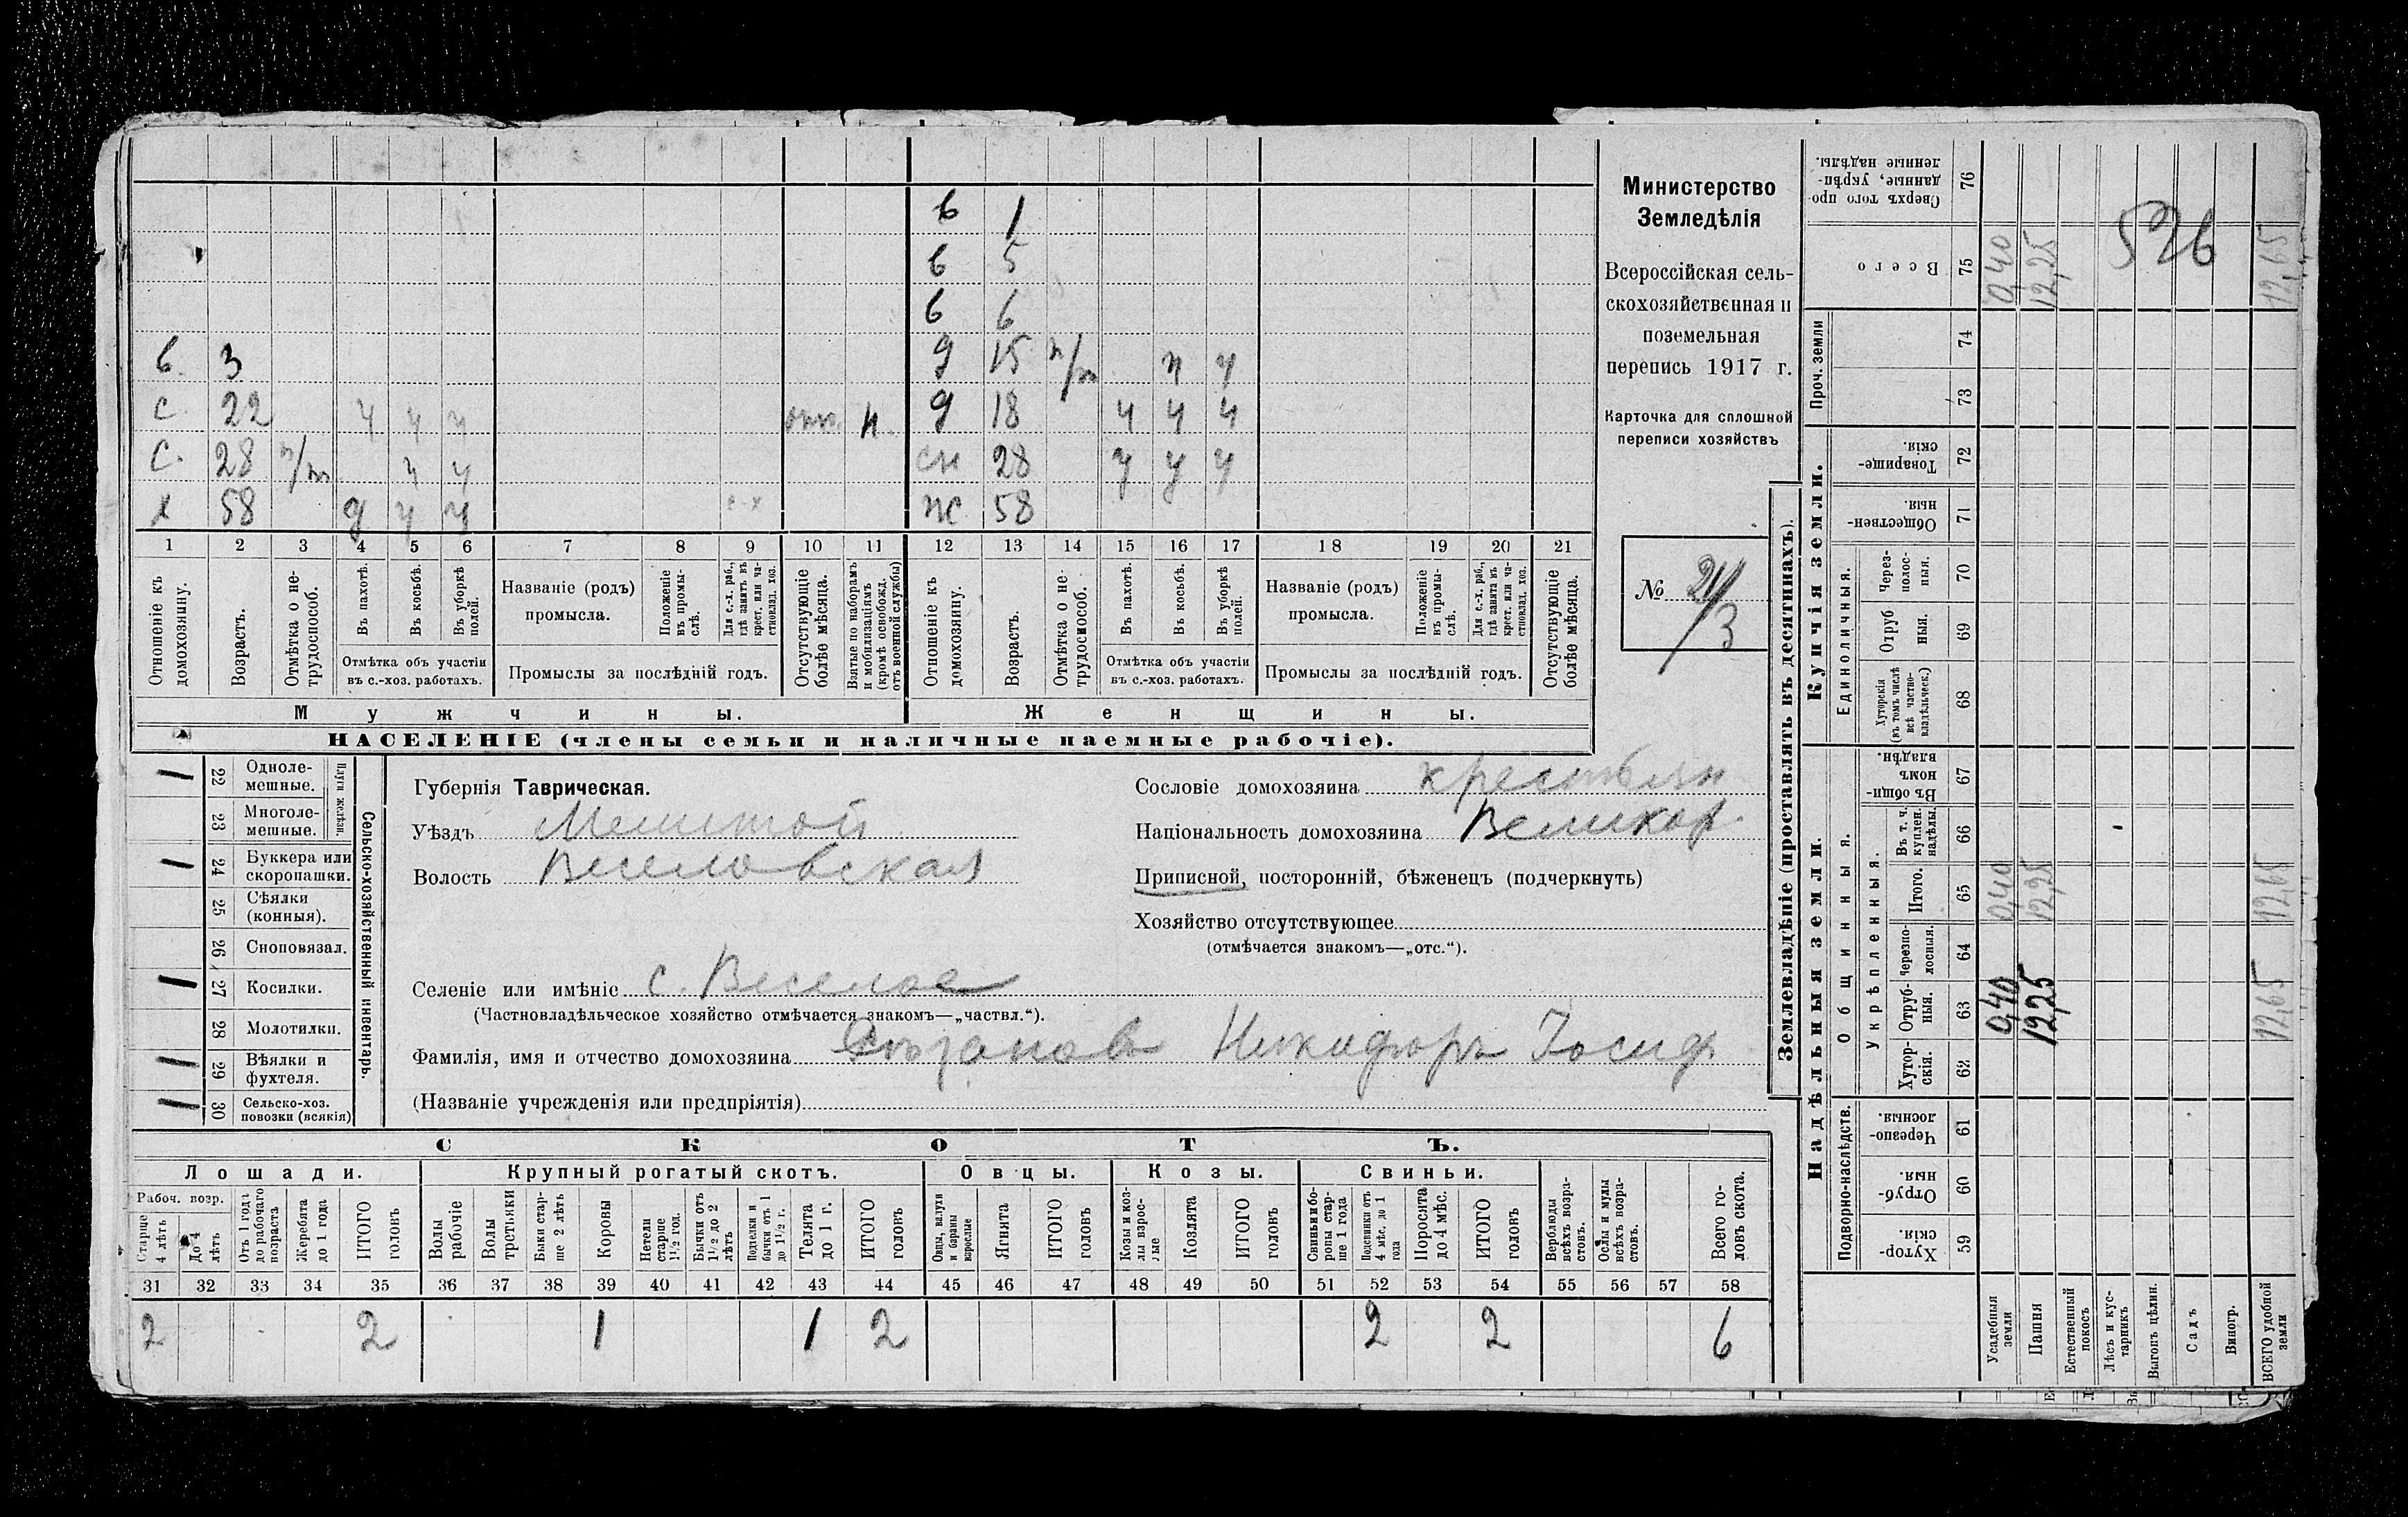 6 1
6 5
6 6
6. 3 д 15 н/т ч ч
с. 22 ч ч ч отс. н. д 18 ч ч ч
с. 28 н/т ч ч сн 28 ч ч ч
х 58 д ч ч с-х ж 58
1 2 3 4 5 6 7 8 9 10 11 12 13 14 15 16 17 18 19 20 21
Отношеніе къ домохозяину.
Возрастъ.
Отмѣтка о нетрудоспособ.
Въ пахотѣ.
Въ косьбѣ.
Въ уборкѣ полей.
Отмѣтка объ участіи
въ с.-хоз. работахъ.
Названіе (родъ)
промысла.
Положеніе въ промыслѣ.
Для с.-х. раб., гдѣ занятъ въ крест. или частновлад. хоз.
Промыслы за послѣдній годъ.
Отсутствующіе болѣе мѣсяца.
Взятые по наборамъ и мобилизаціямъ (кромѣ освобожд. отъ военной службы)
Отношеніе къ домохозяину.
Возрастъ.
Отмѣтка о нетрудоспособ.
Въ пахотѣ.
Въ косьбѣ.
Въ уборкѣ полей.
Отмѣтка объ участіи
въ с.-хоз. работахъ.
Названіе (родъ)
промысла.
Положеніе въ промыслѣ.
Для с.-х. раб., гдѣ занята въ крест. или частновлад. хоз.
Промыслы за послѣдній годъ.
Отсутствующіе болѣе мѣсяца.
Мужчины. Женщины.
НАСЕЛЕНІЕ (члены семьи и наличные наемные рабочіе).
Министерство
Земледѣлія
Всероссійская сель-
скохозяйственная и
поземельная
перепись 1917 г.
Карточка для сплошной
переписи хозяйствъ
№
/3
1 22 Одноле-
мешные.
23 Многоле-
мешные.
Плуги желѣзн.
1 24 Буккера или
скоропашки.
25 Сѣялки
(конныя).
26 Сноповязал.
1 27 Косилки.
28 Молотилки.
1 29 Вѣялки и
фухтеля.
1 30 Сельско-хоз.
повозки (всякія)
Сельско-хозяйственный инвентарь.
Губернія Таврическая.
Уѣздъ Мелитоп
Волость Веселовская
Сословіе домохозяина крестьян
Національность домохозяина Великор.
Приписной, посторонній, бѣженецъ (подчеркнуть)
Хозяйство отсутствующее
(отмѣчается знакомъ—„отс.“).
Селеніе или имѣніе с. Веселое
(Частновладѣльческое хозяйство отмѣчается знакомъ—„частвл.“).
Фамилія, имя и отчество домохозяина Никифоръ Іосиф.
(Названіе учрежденія или предпріятія)
СКОТЪ.
Лошади. Крупный рогатый скотъ. Овцы. Козы. Свиньи.
Рабоч. возр.
Старше 4 лѣтъ
До 4 лѣтъ
Отъ 1 года до рабочаго возраста
Жеребята до 1 года
ИТОГО головъ
Волы рабочіе
Волы третьяки
Быки старше 2 лѣтъ
Коровы
Нетели старше 1½ год.
Бычки отъ 1½ до 2 лѣтъ
Подтелки и бычки отъ 1 до 1½ г.
Телята до 1 г.
ИТОГО головъ
Овцы, валухи и бараны взрослые
Ягнята
ИТОГО головъ
Козы и козлы взрослые
Козлята
ИТОГО головъ
Свиньи и боровы старше 1 года
Подсвинки отъ 4 мѣс. до 1 года
Поросята до 4 мѣс.
ИТОГО головъ
Верблюды всѣхъ возрастовъ.
Ослы и мулы всѣхъ возрастовъ.
Всего головъ скота.
31 32 33 34 35 36 37 38 39 40 41 42 43 44 45 46 47 48 49 50 51 52 53 54 55 56 57 58
2 2 1 1 2 2 2 6
Землевладѣніе (проставлять въ десятинахъ).
Надѣльныя земли. Купчія земли. Проч. земли
Подворно-наслѣдств. Общинныя. Единоличныя.
Укрѣпленныя.
Хуторскія. 59
Отрубныя. 60
Черезполосныя. 61
Хуторскія. 62
Отрубныя. 63 0,40 12,25 12,65
Черезполосныя. 64
Итого. 65 0,40 12,25 12,65
Въ т. ч. куплен. надѣлы. 66
Въ общинномъ владѣн. 67
Хуторскія (въ томъ числѣ всѣ частновладѣльческ.) 68
Отрубныя. 69
Черезполосныя. 70
Общественныя. 71
Товарищескія. 72
73
74
Всего 75 0,40 12,25 12,65
Сверхъ того проданные, укрѣпленные надѣлы. 76
526
Усадебныя земли
Пашня
Естественный покосъ
Лѣсъ и кустарникъ
Выгонъ цѣлин.
Садъ
Виногр.
ВСЕГО удобной земли